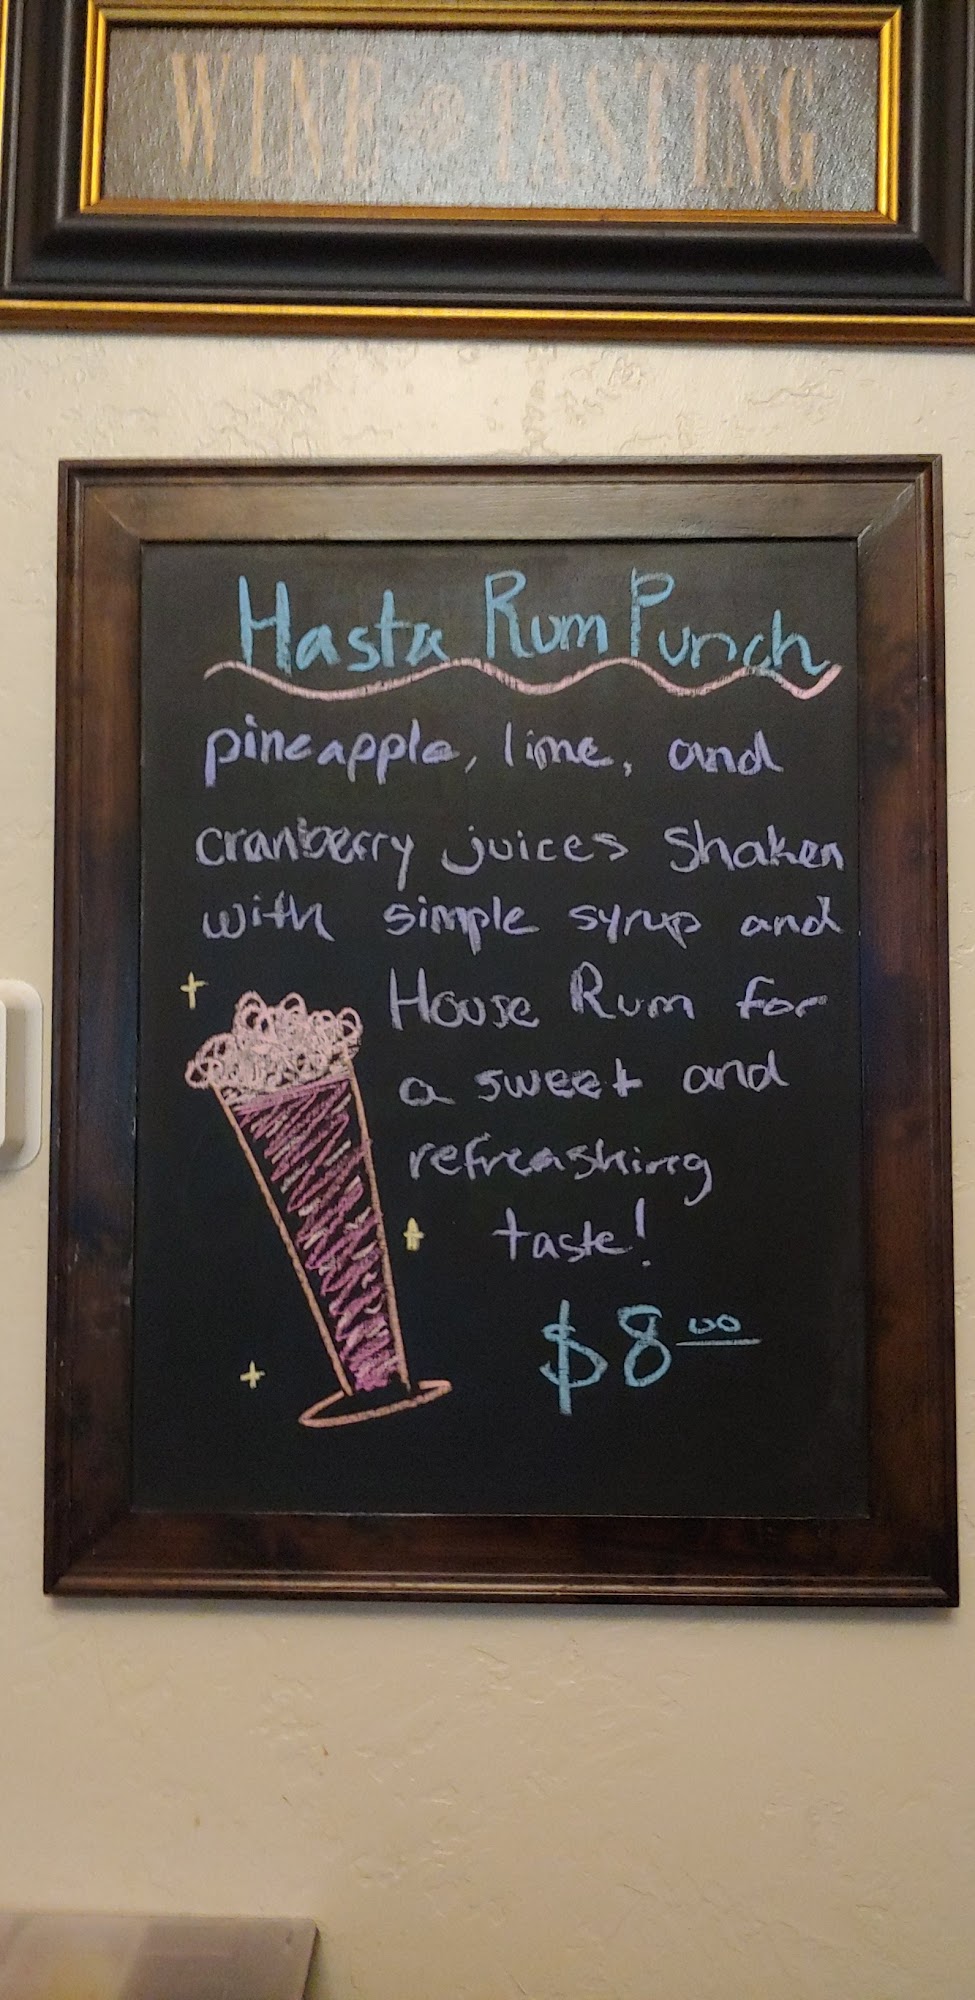 WINE TASTING
Hasta Rum Punch
pineapple, lime, and
cranberry juices shaken
with simple syrup and
House Rum for
a sweet and
refreashing
taste!
$8.00